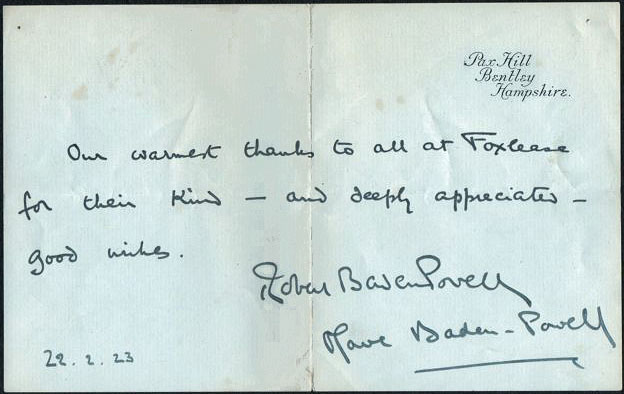 Pax Hill
Bentley
Hampshire.
Our warmest thanks to all at Foxlease
for their kind – and deeply appreciated –
good wishes.
Robert Baden Powell
Olave Baden-Powell
22.2.23